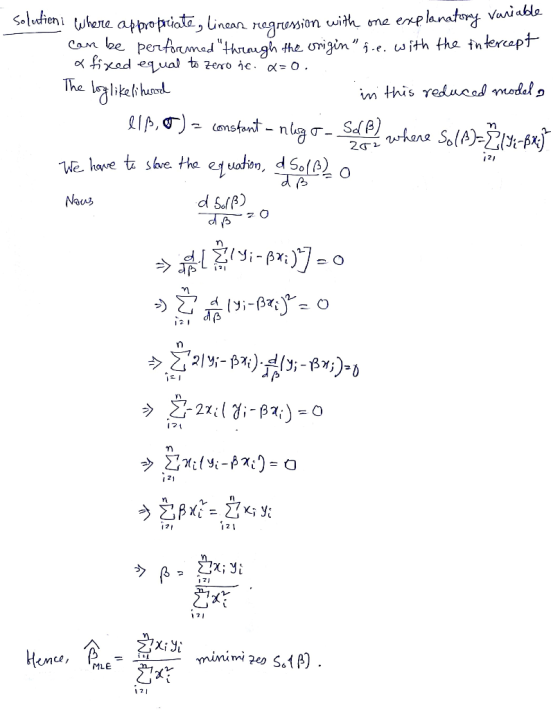 Solution: Where appropriate, linear regression with one explanatory variable
can be performed "through the origin" i.e. with the intercept
α fixed equal to zero ie. α = 0.
The loglikelihood in this reduced model is
l(β, σ) = constant - n log σ - S₀(β)/2σ² where S₀(β) = Σᵢ₌₁ⁿ (yᵢ - βxᵢ)²
We have to slove the equation, d S₀(β)/dβ = 0
Now, d S₀(β)/dβ = 0
⇒ d/dβ [ Σᵢ₌₁ⁿ (yᵢ - βxᵢ)² ] = 0
⇒ Σᵢ₌₁ⁿ d/dβ (yᵢ - βxᵢ)² = 0
⇒ Σᵢ₌₁ⁿ 2(yᵢ - βxᵢ) · d/dβ (yᵢ - βxᵢ) = 0
⇒ Σᵢ₌₁ⁿ -2xᵢ (yᵢ - βxᵢ) = 0
⇒ Σᵢ₌₁ⁿ xᵢ (yᵢ - βxᵢ) = 0
⇒ Σᵢ₌₁ⁿ βxᵢ² = Σᵢ₌₁ⁿ xᵢ yᵢ
⇒ β = Σᵢ₌₁ⁿ xᵢ yᵢ / Σᵢ₌₁ⁿ xᵢ² .
Hence, β̂_MLE = Σᵢ₌₁ⁿ xᵢ yᵢ / Σᵢ₌₁ⁿ xᵢ² minimizes S₀(β) .